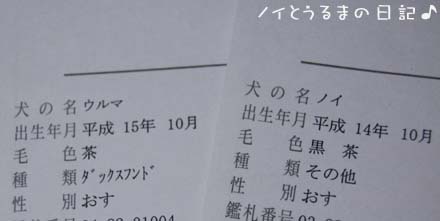 ノイとうるまの日記♪
犬の名 ウルマ
出生年月 平成 15年 10月
毛色 茶
種類 ﾀﾞｯｸｽﾌﾝﾄﾞ
性別 おす
犬の名 ノイ
出生年月 平成 14年 10月
毛色 黒 茶
種類 その他
性別 おす
鑑札番号